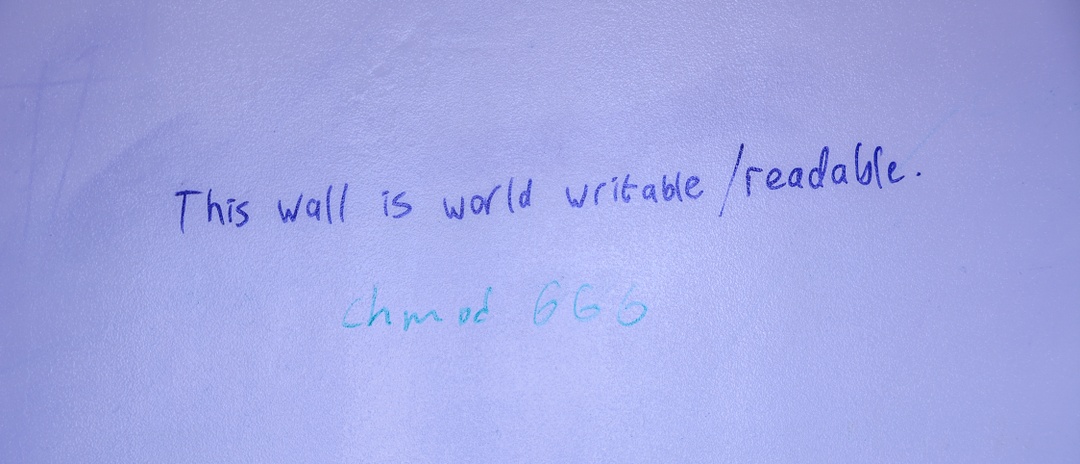 This wall is world writable/readable.
chmod 666